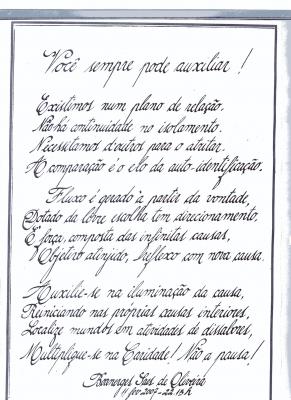 Você sempre pode auxiliar!
Existimos num plano de relação.
Não há continuidade no isolamento.
Necessitamos d'outros para o atritar.
A comparação é o elo da auto-identificação.
Fluxo é gerado à partir da vontade,
Dotado da livre escolha tem direcionamento.
É força, composta das infinitas causas,
Objetivo atingido, reflexo com nova causa.
Auxilie-se na iluminação da causa,
Reiniciando nas próprias causas interiores,
Localize mundos em atividades de dissabores,
Multiplique-se na Caridade! Não a pausa!
de Oliveira
11 fev-2007-22.15h